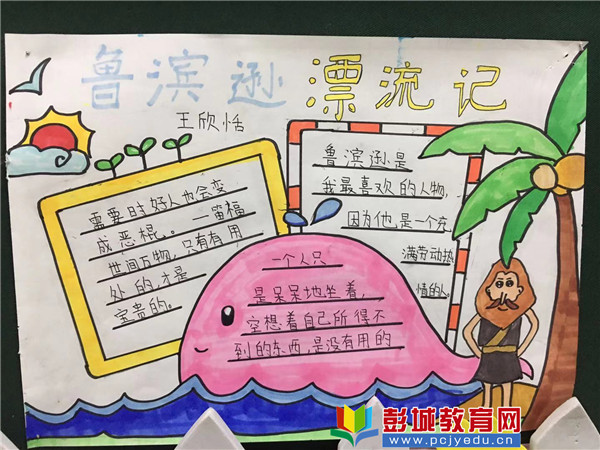 鲁滨逊漂流记
王欣恬
需要时好人也会变
成恶棍。——笛福
世间万物,只有有用
处的,才是
宝贵的。
鲁滨逊是
我最喜欢的人物,
因为他是一个充
满劳动热
情的人
一个人只
是呆呆地坐着,
空想着自己所得不
到的东西,是没有用的
彭城教育网
www.pcjyedu.cn